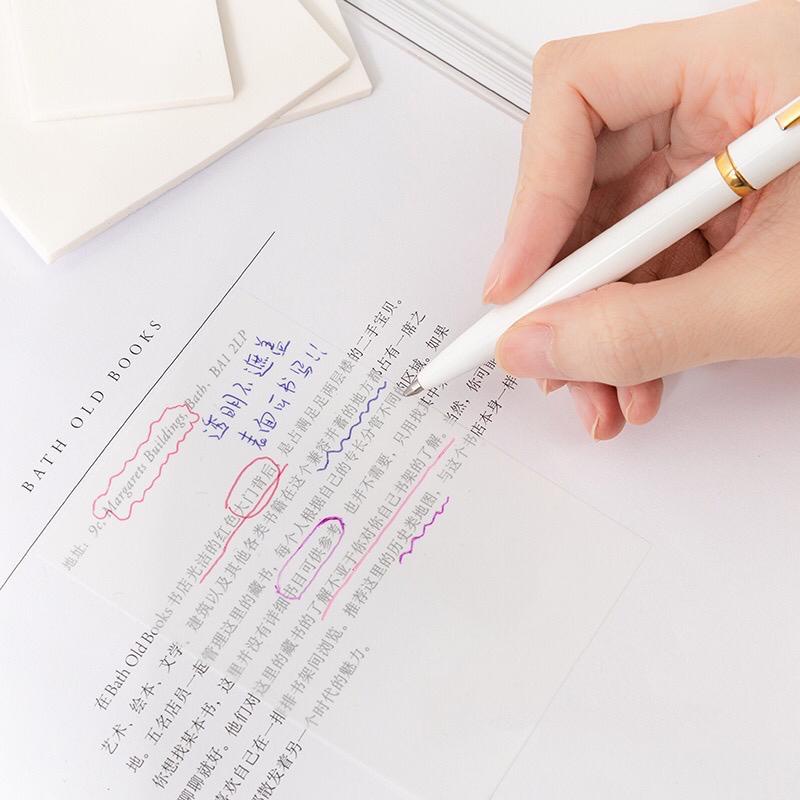 BATH OLD BOOKS
地址：9c, Margarets Buildings, Bath, BA1 2LP
透明不遮盖
表面可书写!!
在Bath Old Books 书店光洁的红色大门背后，是占满足足两层楼的二手宝贝。
艺术、绘本、文学、建筑以及其他各类书籍在这个兼容并蓄的地方都占有一席之
地。五名店员一起管理这里的藏书，每个人根据自己的专长分管不同的区域。如果
你想找某本书，这里并没有详细书目可供参考，也并不需要，只用找其中
聊聊就好。他们对这里的藏书的了解不亚于你对你自己书架的了解。当然，你可
喜欢自己在一排排书架间浏览。推荐这里的历史类地图，与这个书店本身一样
都散发着另一个时代的魅力。